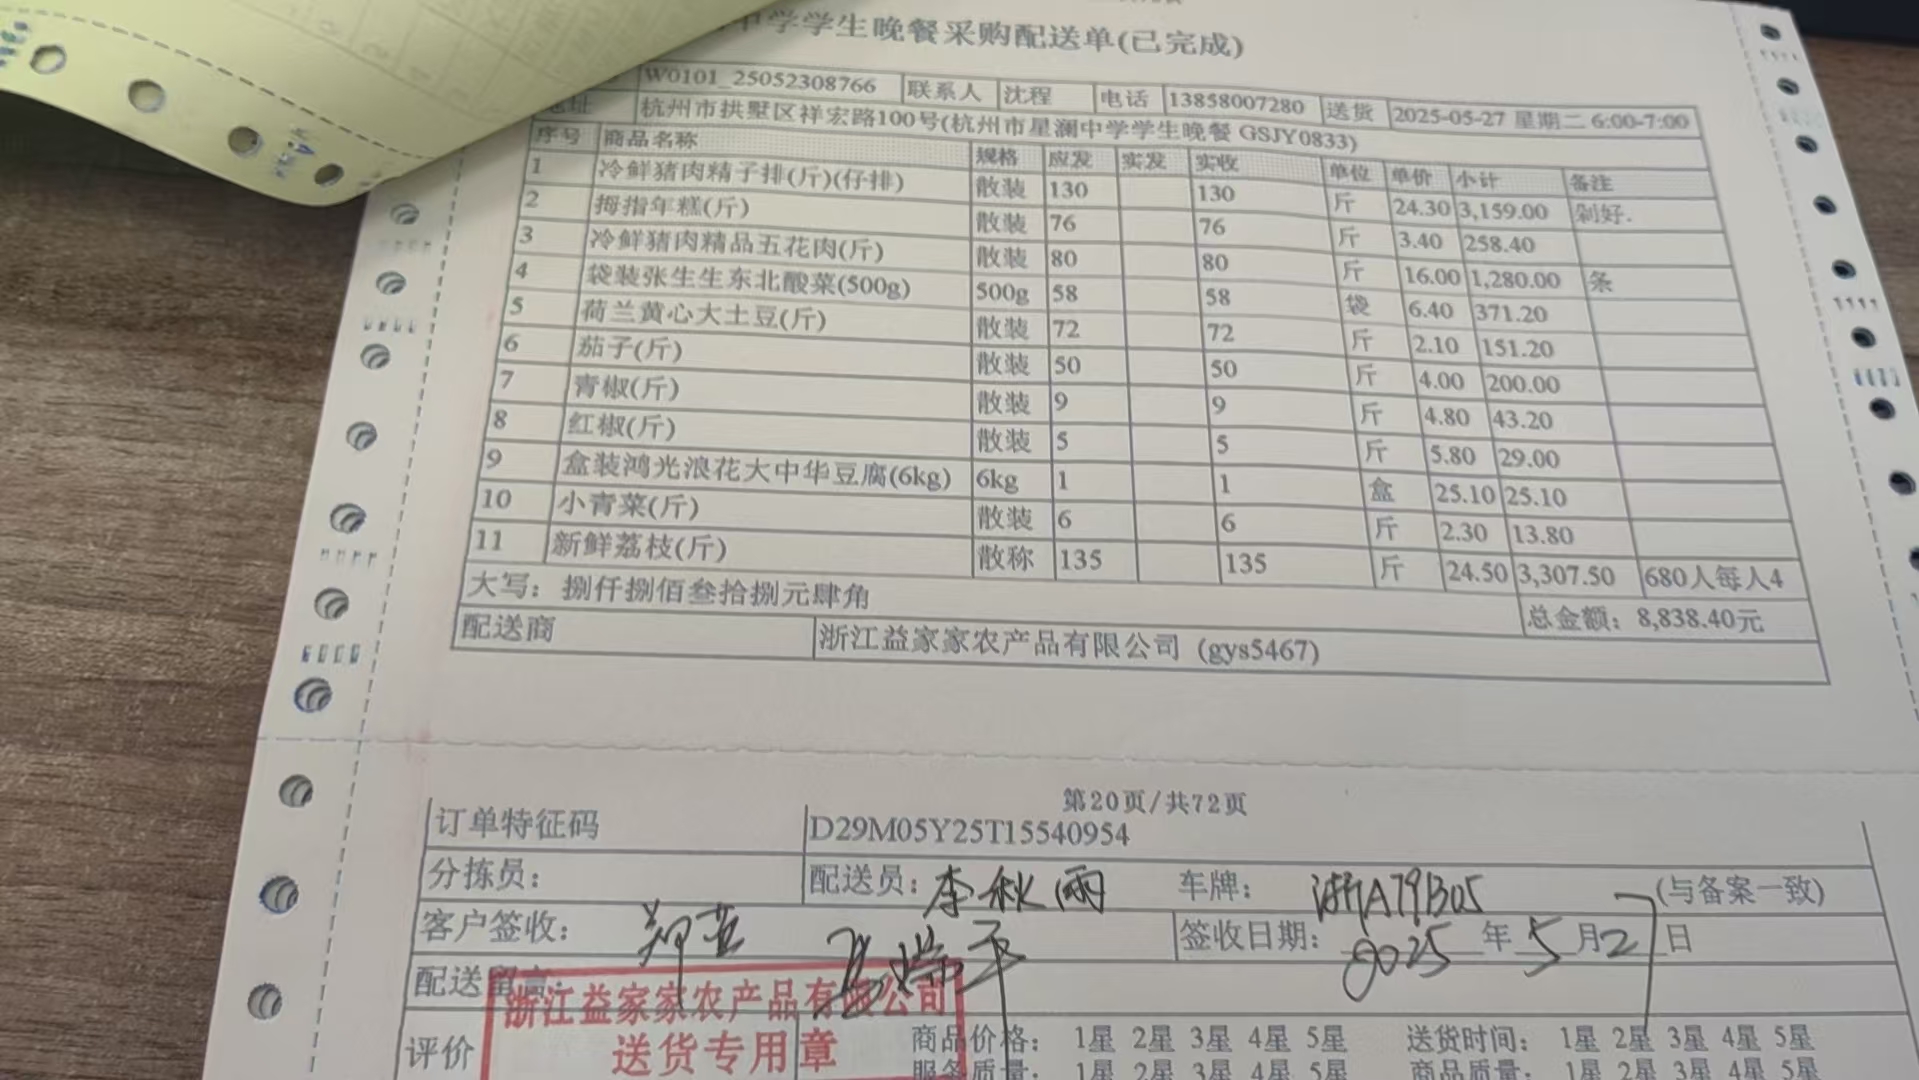 中学学生晚餐采购配送单(已完成)
W0101_25052308766 联系人 沈程 电话 13858007280 送货 2025-05-27 星期二 6:00-7:00
地址 杭州市拱墅区祥宏路100号(杭州市星澜中学学生晚餐 GSJY0833)
序号 商品名称 规格 应发 实发 实收 单位 单价 小计 备注
1 冷鲜猪肉精子排(斤)(仔排) 散装 130 130 斤 24.30 3,159.00 剁好.
2 拇指年糕(斤) 散装 76 76 斤 3.40 258.40
3 冷鲜猪肉精品五花肉(斤) 散装 80 80 斤 16.00 1,280.00 条
4 袋装张生生东北酸菜(500g) 500g 58 58 袋 6.40 371.20
5 荷兰黄心大土豆(斤) 散装 72 72 斤 2.10 151.20
6 茄子(斤) 散装 50 50 斤 4.00 200.00
7 青椒(斤) 散装 9 9 斤 4.80 43.20
8 红椒(斤) 散装 5 5 斤 5.80 29.00
9 盒装鸿光浪花大中华豆腐(6kg) 6kg 1 1 盒 25.10 25.10
10 小青菜(斤) 散装 6 6 斤 2.30 13.80
11 新鲜荔枝(斤) 散称 135 135 斤 24.50 3,307.50 680人每人4
大写：捌仟捌佰叁拾捌元肆角 总金额：8,838.40元
配送商 浙江益家家农产品有限公司 (gys5467)
第20页/共72页
订单特征码 D29M05Y25T15540954
分拣员： 配送员：李秋雨 车牌：浙A79B05 (与备案一致)
客户签收： 签收日期：2025年5月27日
配送留言：
浙江益家家农产品有限公司
送货专用章
评价 商品价格： 1星 2星 3星 4星 5星 送货时间： 1星 2星 3星 4星 5星
服务质量： 1星 2星 3星 4星 5星 商品质量： 1星 2星 3星 4星 5星